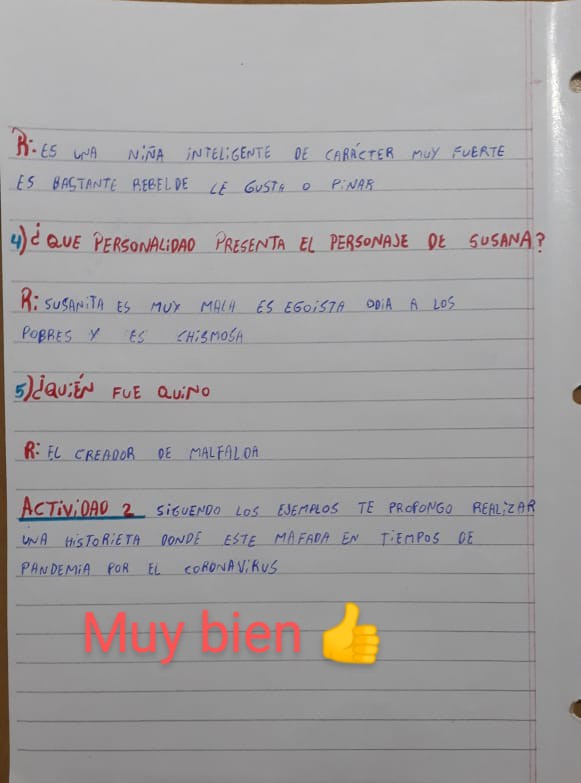 R: ES UNA NIÑA INTELIGENTE DE CARÁCTER MUY FUERTE
ES BASTANTE REBELDE LE GUSTA O PINAR
4) ¿QUE PERSONALIDAD PRESENTA EL PERSONAJE DE SUSANA?
R: SUSANITA ES MUY MALA ES EGOISTA ODIA A LOS
POBRES Y ES CHISMOSA
5) ¿QUIÉN FUE QUINO
R: EL CREADOR DE MALFALDA
ACTIVIDAD 2 SIGUENDO LOS EJEMPLOS TE PROPONGO REALIZAR
UNA HISTORIETA DONDE ESTE MAFADA EN TIEMPOS DE
PANDEMIA POR EL CORONAVIRUS
Muy bien 👍